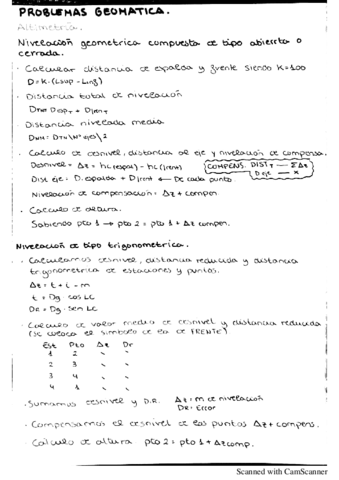 PROBLEMAS GEOMATICA.
Altimetria.
Nivelación geometrica compuesta de tipo abierto o
cerrada.
· Calcular distancia de espalda y frente siendo K=100
D=K·(Lsup - Linf)
· Distancia total de nivelación
DTN= DespT + DfrenT
Distancia nivelada media
· Calculo de desnivel, distancia al eje y nivelación de compensa.
Desnivel = Δz = hc (espal) - hc (frent)
COMPENS. DIST T — ΣΔz
D eje — x
Dist eje = D. espalda + D frent ← De cada punto.
Nivelación de compensación = Δz + compen
· Calculo de altura.
Sabiendo pto 1 → pto 2 = pto 1 + Δz compen.
Nivelación de tipo trigonometrica.
· Calculamos desnivel, distancia reducida y distancia
trigonometrica de estaciones y puntos.
Δz = t + i - m
t = Dg · cos LC
DR = Dg · sen LC
· Calculo de valor medio de desnivel y distancia reducida
(se coloca el simbolo de Ea de FRENTE)
Est Pto Δz Dr
1 2 \ \
2 3 \ \
3 4 \ \
4 1 \ \
· Sumamos desnivel y D.R. Δz = m de nivelación
DR = Error
· Compensamos el desnivel de los puntos Δz + compens.
· Calculo de altura pto 2 = pto 1 + Δz comp.
Scanned with CamScanner